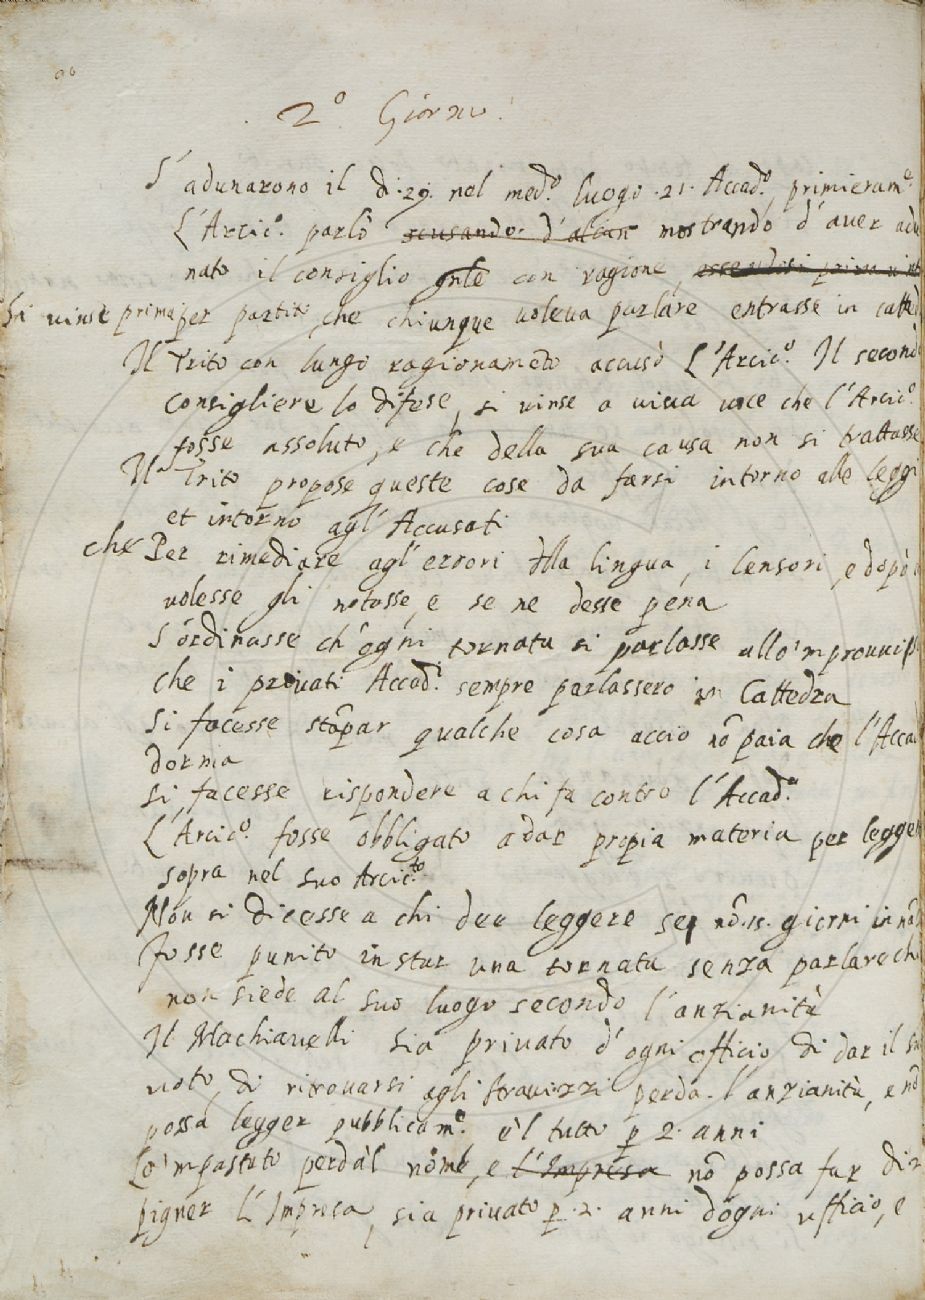 2.º Giorno.
S'adunarono il dì .29. nel med.º luogo .21. Accad.º, primieram.º
L'Arcic.º parlò scusando d'alcun mostrando d'aver adu
nato il consiglio con ragione
Si vinse prima per partito, che chiunque voleva parlare entrasse in catted
Il Trito con lungo ragionamẽto accusò L'Arcic.º Il secondo
consigliere lo difese, si vinse a viva voce che l'Arcic.º
fosse assoluto, e che della sua causa non si trattasse
Il Trito propose queste cose da farsi intorno alle leggi
et intorno agl'Accusati
che Per rimediare agl'errori dlla lingua, i Censori, e dopò
volesse gli notasse, e se ne desse pena
S'ordinasse ch'ogni tornata si parlasse allo'mprovviso
che i privati Accad.ⁱ sempre parlassero in Cattedra
Si facesse stãpar qualche cosa acciò nõ paia che l'Accad
dorma
Si facesse rispondere a chi fa contro l'Accad.ª
L'Arcic.º fosse obbligato a dar propia materia per legger
sopra nel suo Arcic.to
Non si dicesse a chi dee leggere se nõ .15. giorni inna
Fosse punito in star una tornata senza parlare chi
non siede al suo luogo secondo l'anzianità
Il Machiavelli sia privato d'ogni officio di dar il su
voto, di ritrovarsi agli stravizzi perda l'anzianità, e nõ
possa legger pubblicam.º e'l tutto p 2. anni
Lo'mpastato perda'l nome, e l'Impresa nõ possa far dir
pigner l'Impresa, sia privato p .2. anni d'ogni ufficio, e